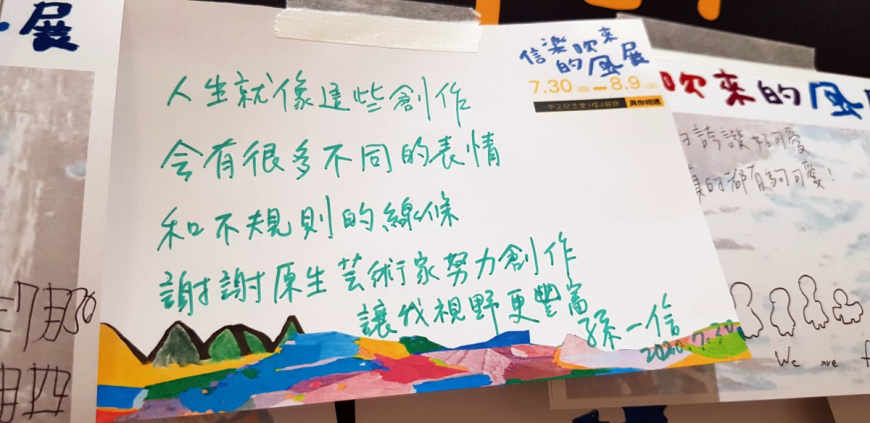 展
人生就像這些創作
會有很多不同的表情
和不規則的線條
謝謝原生芸術家努力創作
讓我視野更豐富
孫一信
2020.7.30
信樂吹來
的風展
7.30 — 8.9
與你相遇
吹來的風
可愛
可愛!
We are
7月30
月四